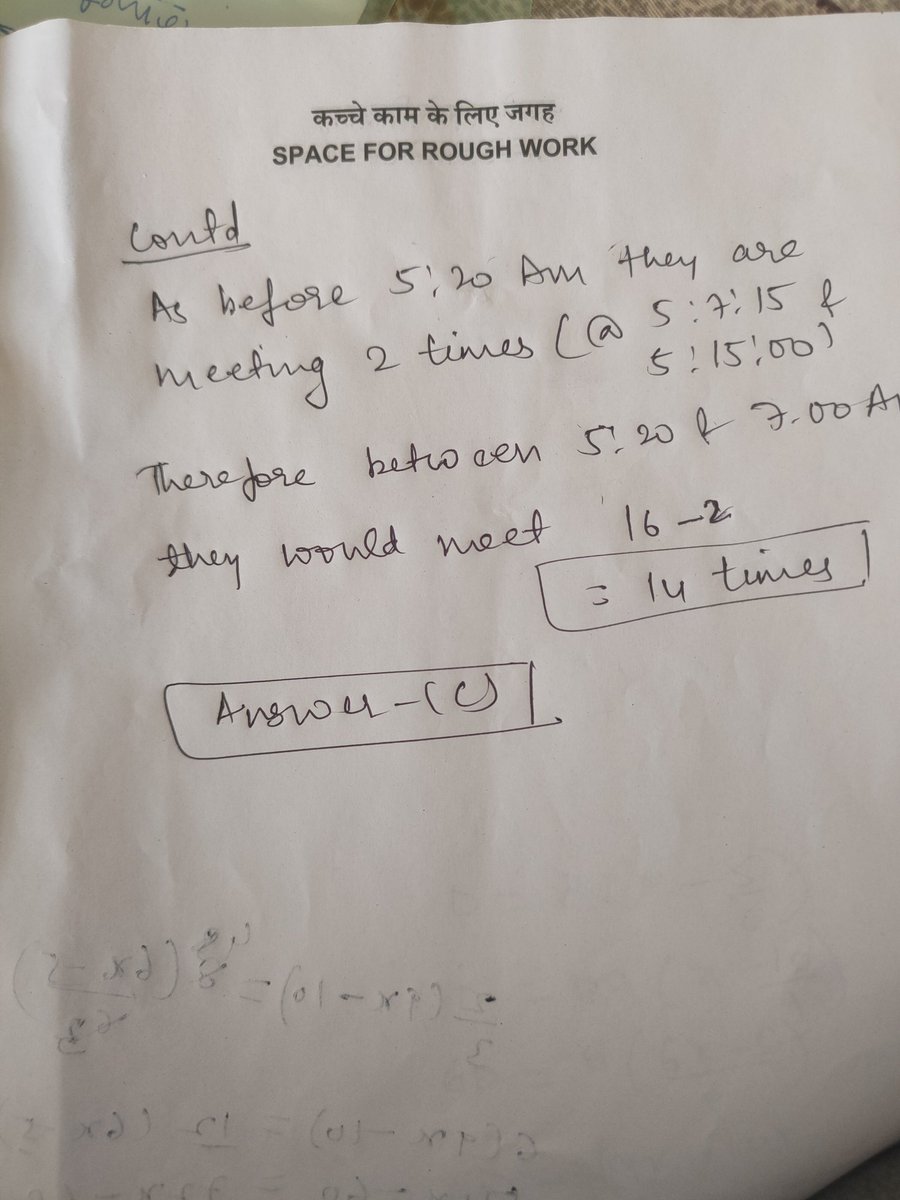 कच्चे काम के लिए जगह
SPACE FOR ROUGH WORK
Contd
As before 5:20 Am they are
meeting 2 times (@ 5:7:15 &
5:15:00)
Therefore between 5:20 & 7.00 A
they would meet 16-2
= 14 times
Answer-(C)